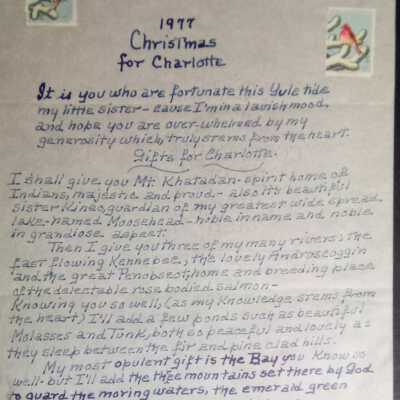 1977
Christmas
for Charlotte
It is you who are fortunate this Yule tide
my little sister - cause I'm in a lavish mood,
and hope you are over-whelmed by my
generosity which, truly stems from the heart.
Gifts for Charlotte.
I shall give you Mt. Khatadan - spirit home of
Indians, majestic and proud - also it's beautiful
sister Kineo, guardian of my greatest wide spread
lake - named Moosehead - noble in name and noble
in grandiose aspect.
Then I give you three of my many rivers; the
fast flowing Kennebec, the lovely Androscoggin
and the great Penobsect, home and breeding place
of the delectable rose bodied salmon -
Knowing you so well, (as my knowledge stems from
the heart) I'll add a few ponds such as beautiful
Molasses and Tunk, both so peaceful and lovely as
they sleep between the fir and pine clad hills.
My most opulent gift is the Bay you know so
well - but I'll add the three mountains set there by God
to guard the moring waters, the emerald green